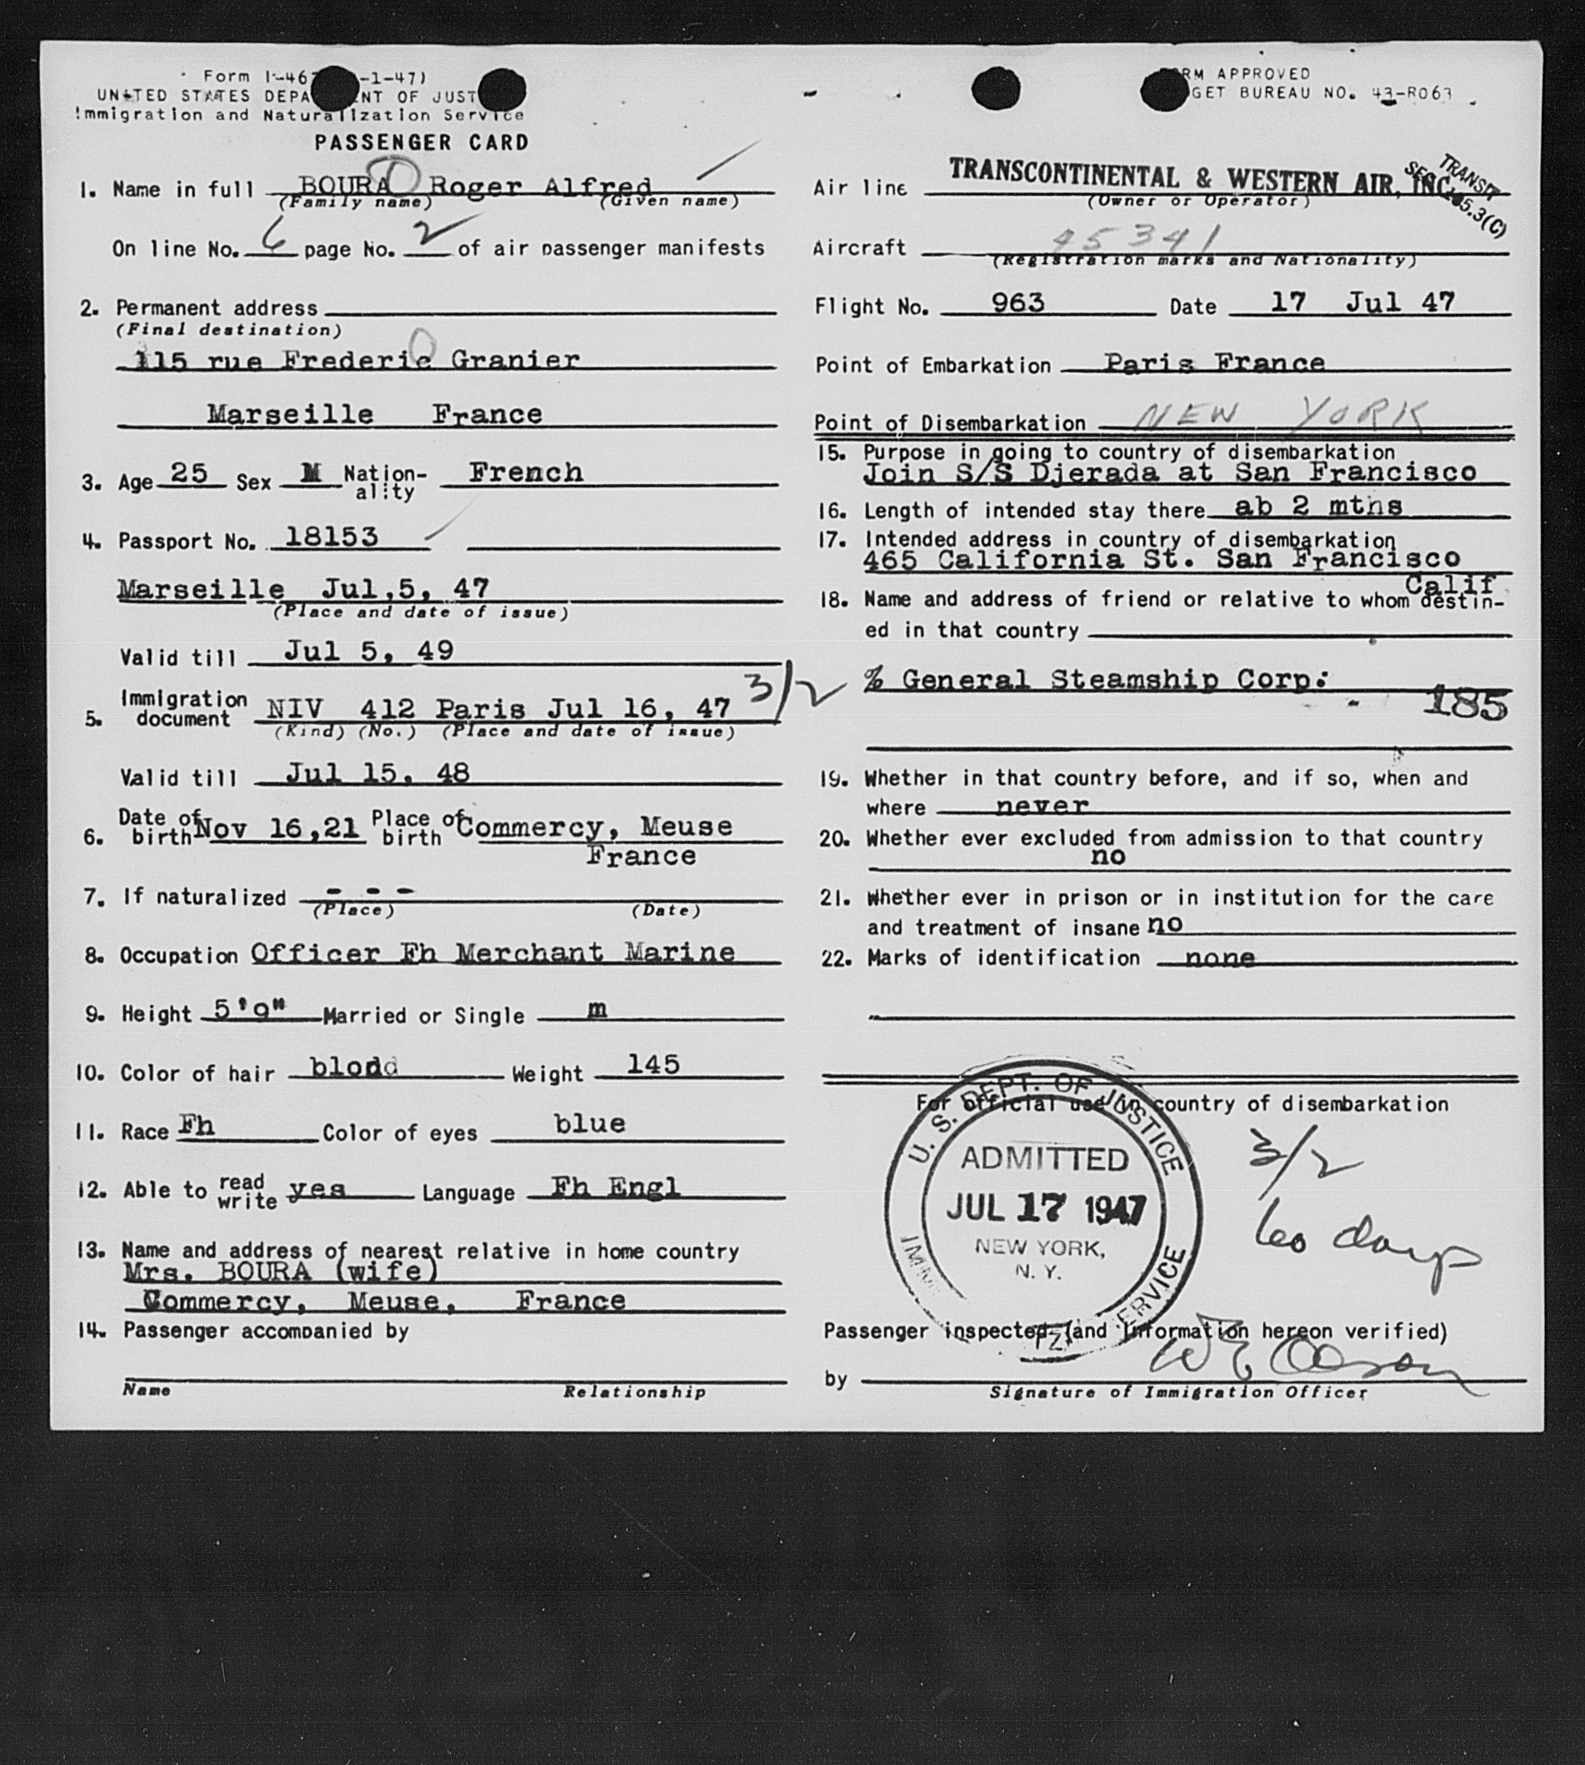 Form I-46 -1-47)
UNITED STATES DEPA NT OF JUST
Immigration and Naturalization Service
PASSENGER CARD
1. Name in full BOURA Roger Alfred
(Family name) (Given name)
On line No. 6 page No. 2 of air passenger manifests
2. Permanent address
(Final destination)
115 rue Frederic Granier
Marseille France
3. Age 25 Sex M Nation-
ality French
4. Passport No. 18153
Marseille Jul,5, 47
(Place and date of issue)
Valid till Jul 5, 49
5. Immigration
document NIV 412 Paris Jul 16, 47 3/2
(Kind) (No.) (Place and date of issue)
Valid till Jul 15, 48
6. Date of
birth Nov 16,21 Place of
birth Commercy, Meuse
France
7. If naturalized - - -
(Place) (Date)
8. Occupation Officer Fh Merchant Marine
9. Height 5'9" Married or Single m
10. Color of hair blond Weight 145
11. Race Fh Color of eyes blue
12. Able to read
write yes Language Fh Engl
13. Name and address of nearest relative in home country
Mrs. BOURA (wife)
Commercy, Meuse, France
14. Passenger accompanied by
Name Relationship
RM APPROVED
GET BUREAU NO. 43-R063
Air line TRANSCONTINENTAL & WESTERN AIR, INC.
(Owner or Operator)
TRANSIT
Aircraft 45341
(Registration marks and Nationality)
Flight No. 963 Date 17 Jul 47
Point of Embarkation Paris France
Point of Disembarkation NEW YORK
15. Purpose in going to country of disembarkation
Join S/S Djerada at San Francisco
16. Length of intended stay there ab 2 mths
17. Intended address in country of disembarkation
465 California St. San Francisco
Calif
18. Name and address of friend or relative to whom destin-
ed in that country
% General Steamship Corp:
185
19. Whether in that country before, and if so, when and
where never
20. Whether ever excluded from admission to that country
no
21. Whether ever in prison or in institution for the care
and treatment of insane no
22. Marks of identification none
For official use in country of disembarkation
U. S. DEPT. OF JUSTICE
ADMITTED
JUL 17 1947
NEW YORK,
N. Y.
3/2
60 days
Passenger inspected (and information hereon verified)
by
Signature of Immigration Officer